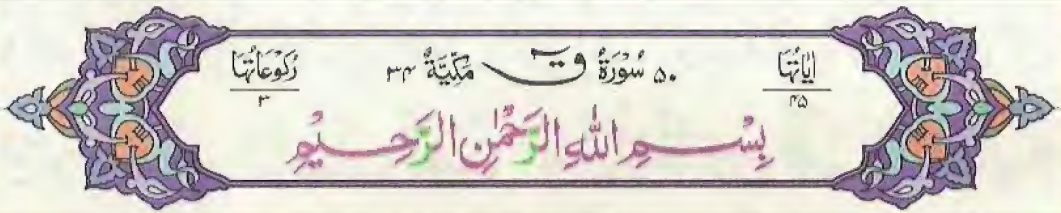 اٰيَاتُهَا ۴۵ ۵۰ سُوْرَةُ قٓ مَكِّيَّةٌ ۳۴ رُكُوْعَاتُهَا ۳
بِسْمِ اللّٰهِ الرَّحْمٰنِ الرَّحِيْمِ